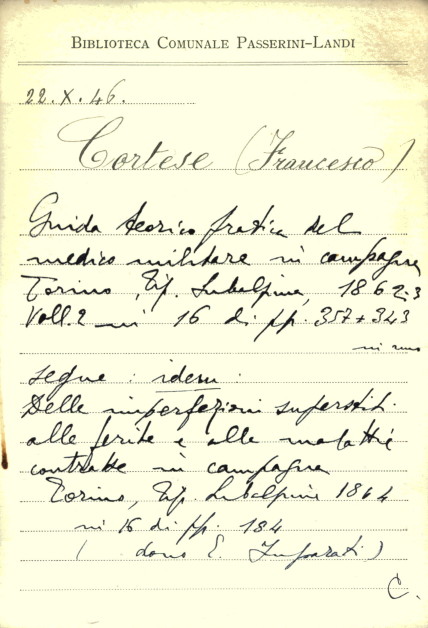 BIBLIOTECA COMUNALE PASSERINI-LANDI
22. X. 46.
Cortese (Francesco)
Guida teorico pratica del
medico militare in campagna
Torino, Tip. Subalpina, 1862-3
Voll. 2 in 16 di pp. 357 + 343
in uno
segue : idem :
Delle imperfezioni superstiti
alle ferite e alle malattie
contratte in campagna
Torino, Tip. Subalpina 1864
in 16 di pp. 184
( dono E. Imparati )
C.